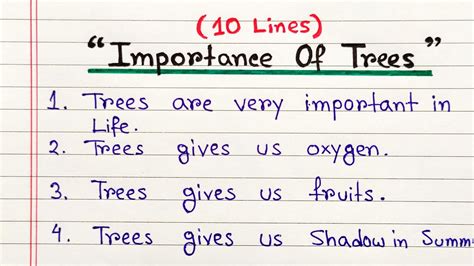 (10 Lines)
“Importance Of Trees”
1. Trees are very important in
Life.
2. Trees gives us oxygen.
3. Trees gives us fruits.
4. Trees gives us Shadow in